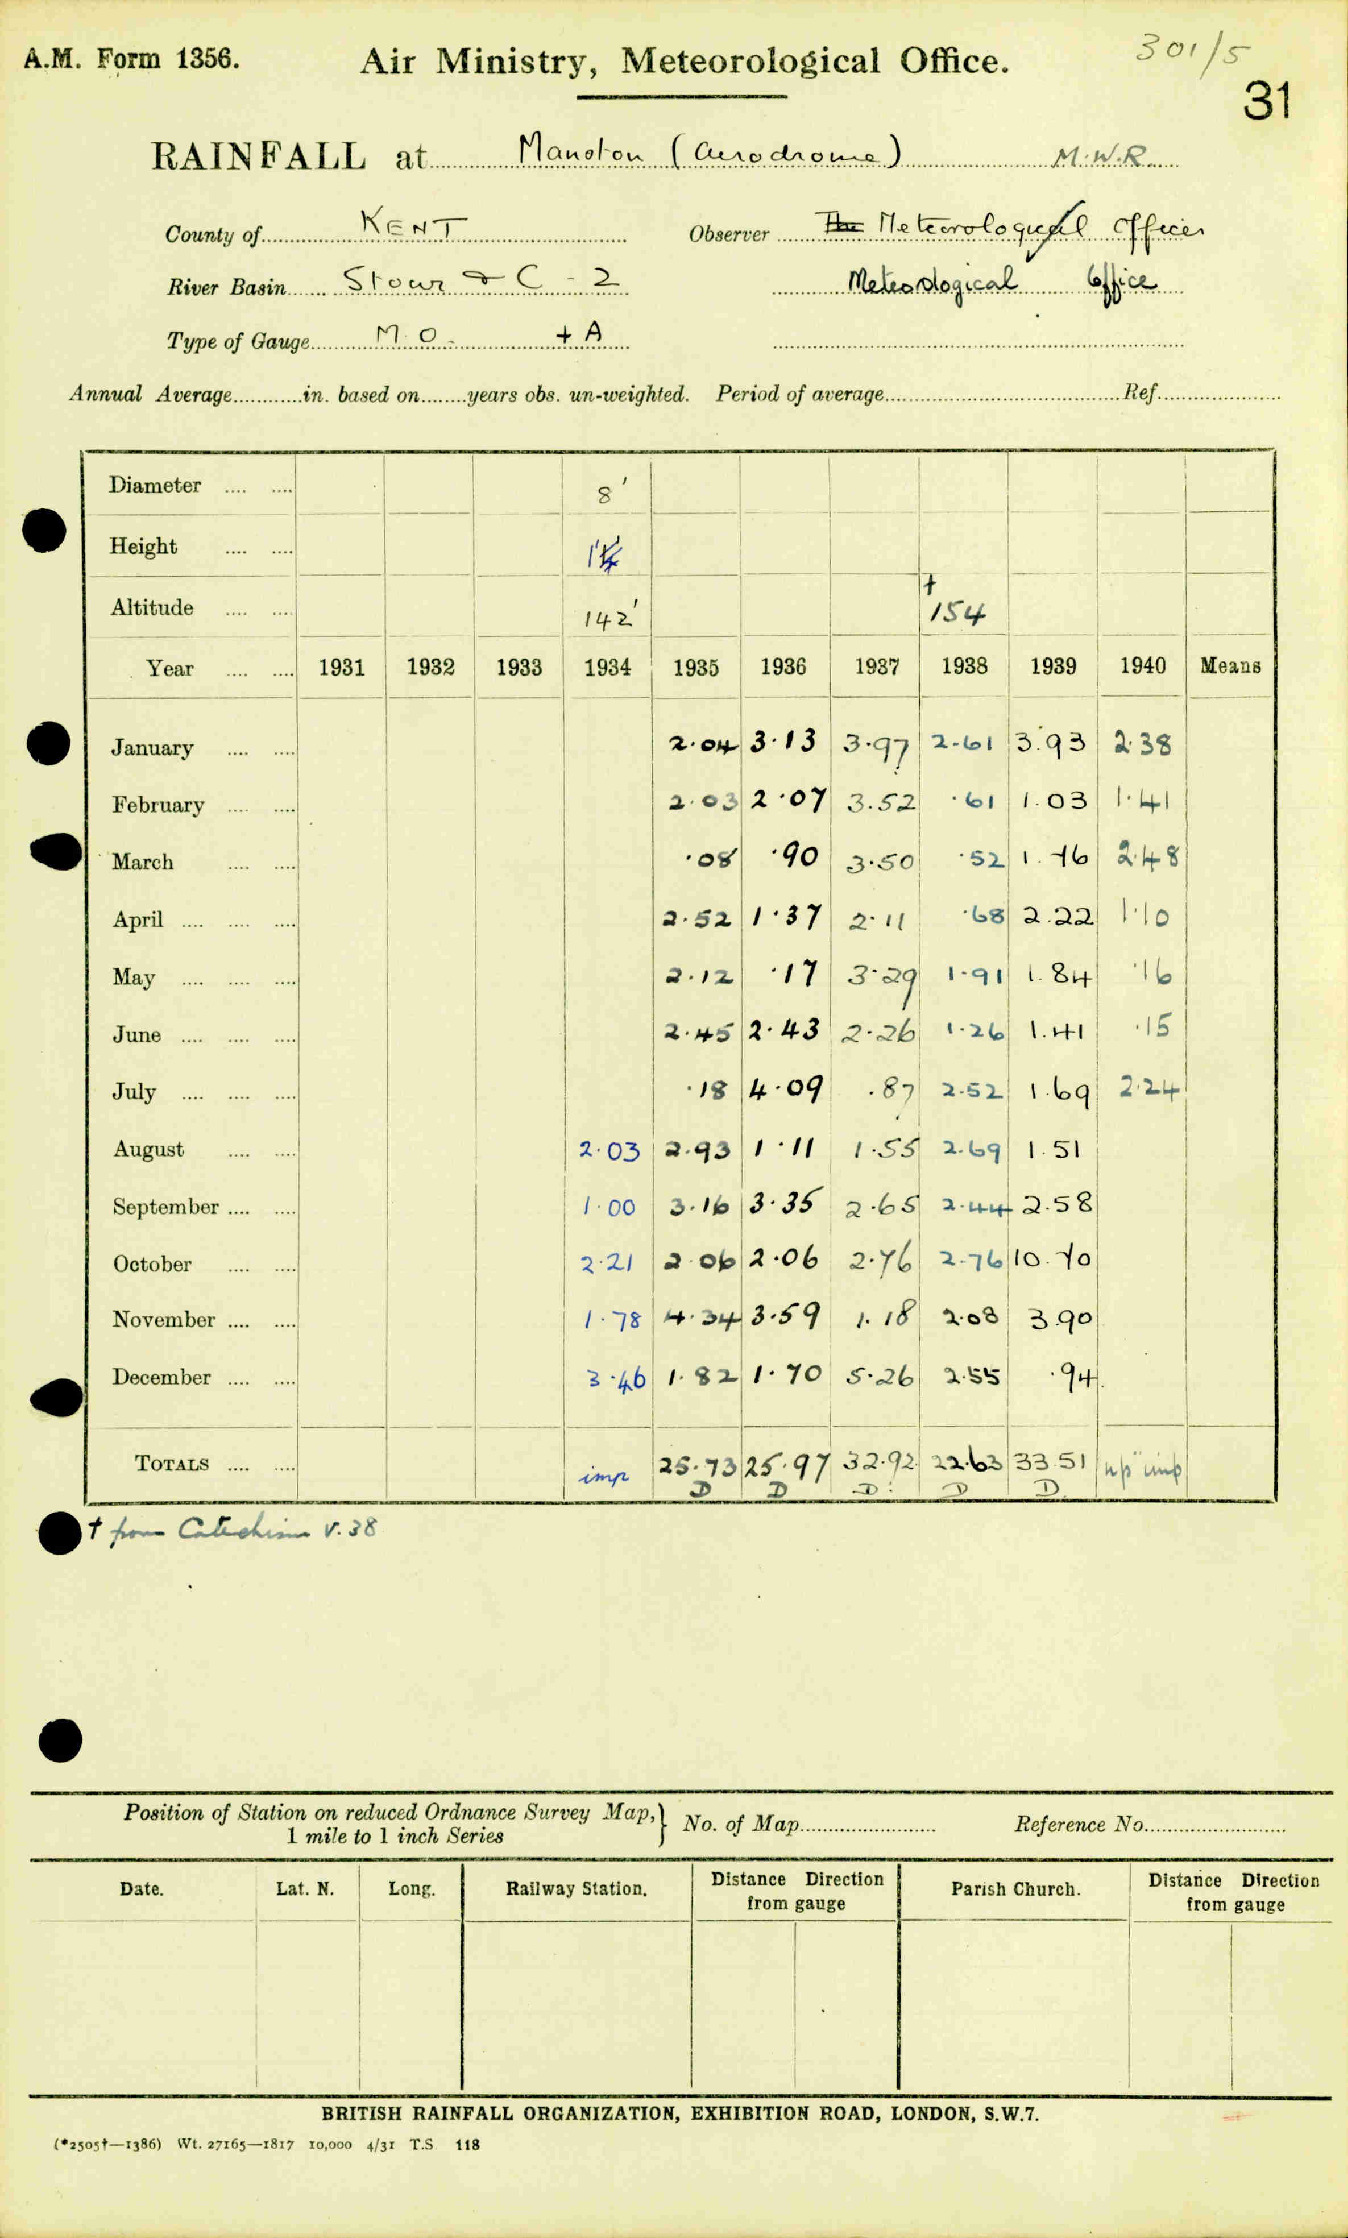 A.M. Form 1356. Air Ministry, Meteorological Office. 301/5
31
RAINFALL at Manston (Aerodrome) M.W.R.
County of KENT Observer The Meteorological Officer
River Basin Stour & C - 2 Meteorological Office
Type of Gauge M.O. + A
Annual Average in. based on years obs. un-weighted. Period of average Ref.
Diameter 8'
Height 1'
Altitude 142' † 154
Year 1931 1932 1933 1934 1935 1936 1937 1938 1939 1940 Means
January 2.04 3.13 3.97 2.61 3.93 2.38
February 2.03 2.07 3.52 .61 1.03 1.41
March .08 .90 3.50 .52 1.76 2.48
April 2.52 1.37 2.11 .68 2.22 1.10
May 2.12 .17 3.29 1.91 1.84 .16
June 2.45 2.43 2.26 1.26 1.41 .15
July .18 4.09 .87 2.52 1.69 2.24
August 2.03 2.93 1.11 1.55 2.69 1.51
September 1.00 3.16 3.35 2.65 2.44 2.58
October 2.21 2.06 2.06 2.76 2.76 10.70
November 1.78 4.34 3.59 1.18 2.08 3.90
December 3.46 1.82 1.70 5.26 2.55 .94
TOTALS imp 25.73 25.97 32.92 22.63 33.51 imp
D D D D D
† from Catechism V.38
Position of Station on reduced Ordnance Survey Map,} No. of Map Reference No.
1 mile to 1 inch Series
Date. Lat. N. Long. Railway Station. Distance Direction from gauge Parish Church. Distance Direction from gauge
BRITISH RAINFALL ORGANIZATION, EXHIBITION ROAD, LONDON, S.W.7.
(*2505†—1386) Wt. 27165—1817 10,000 4/31 T.S 118